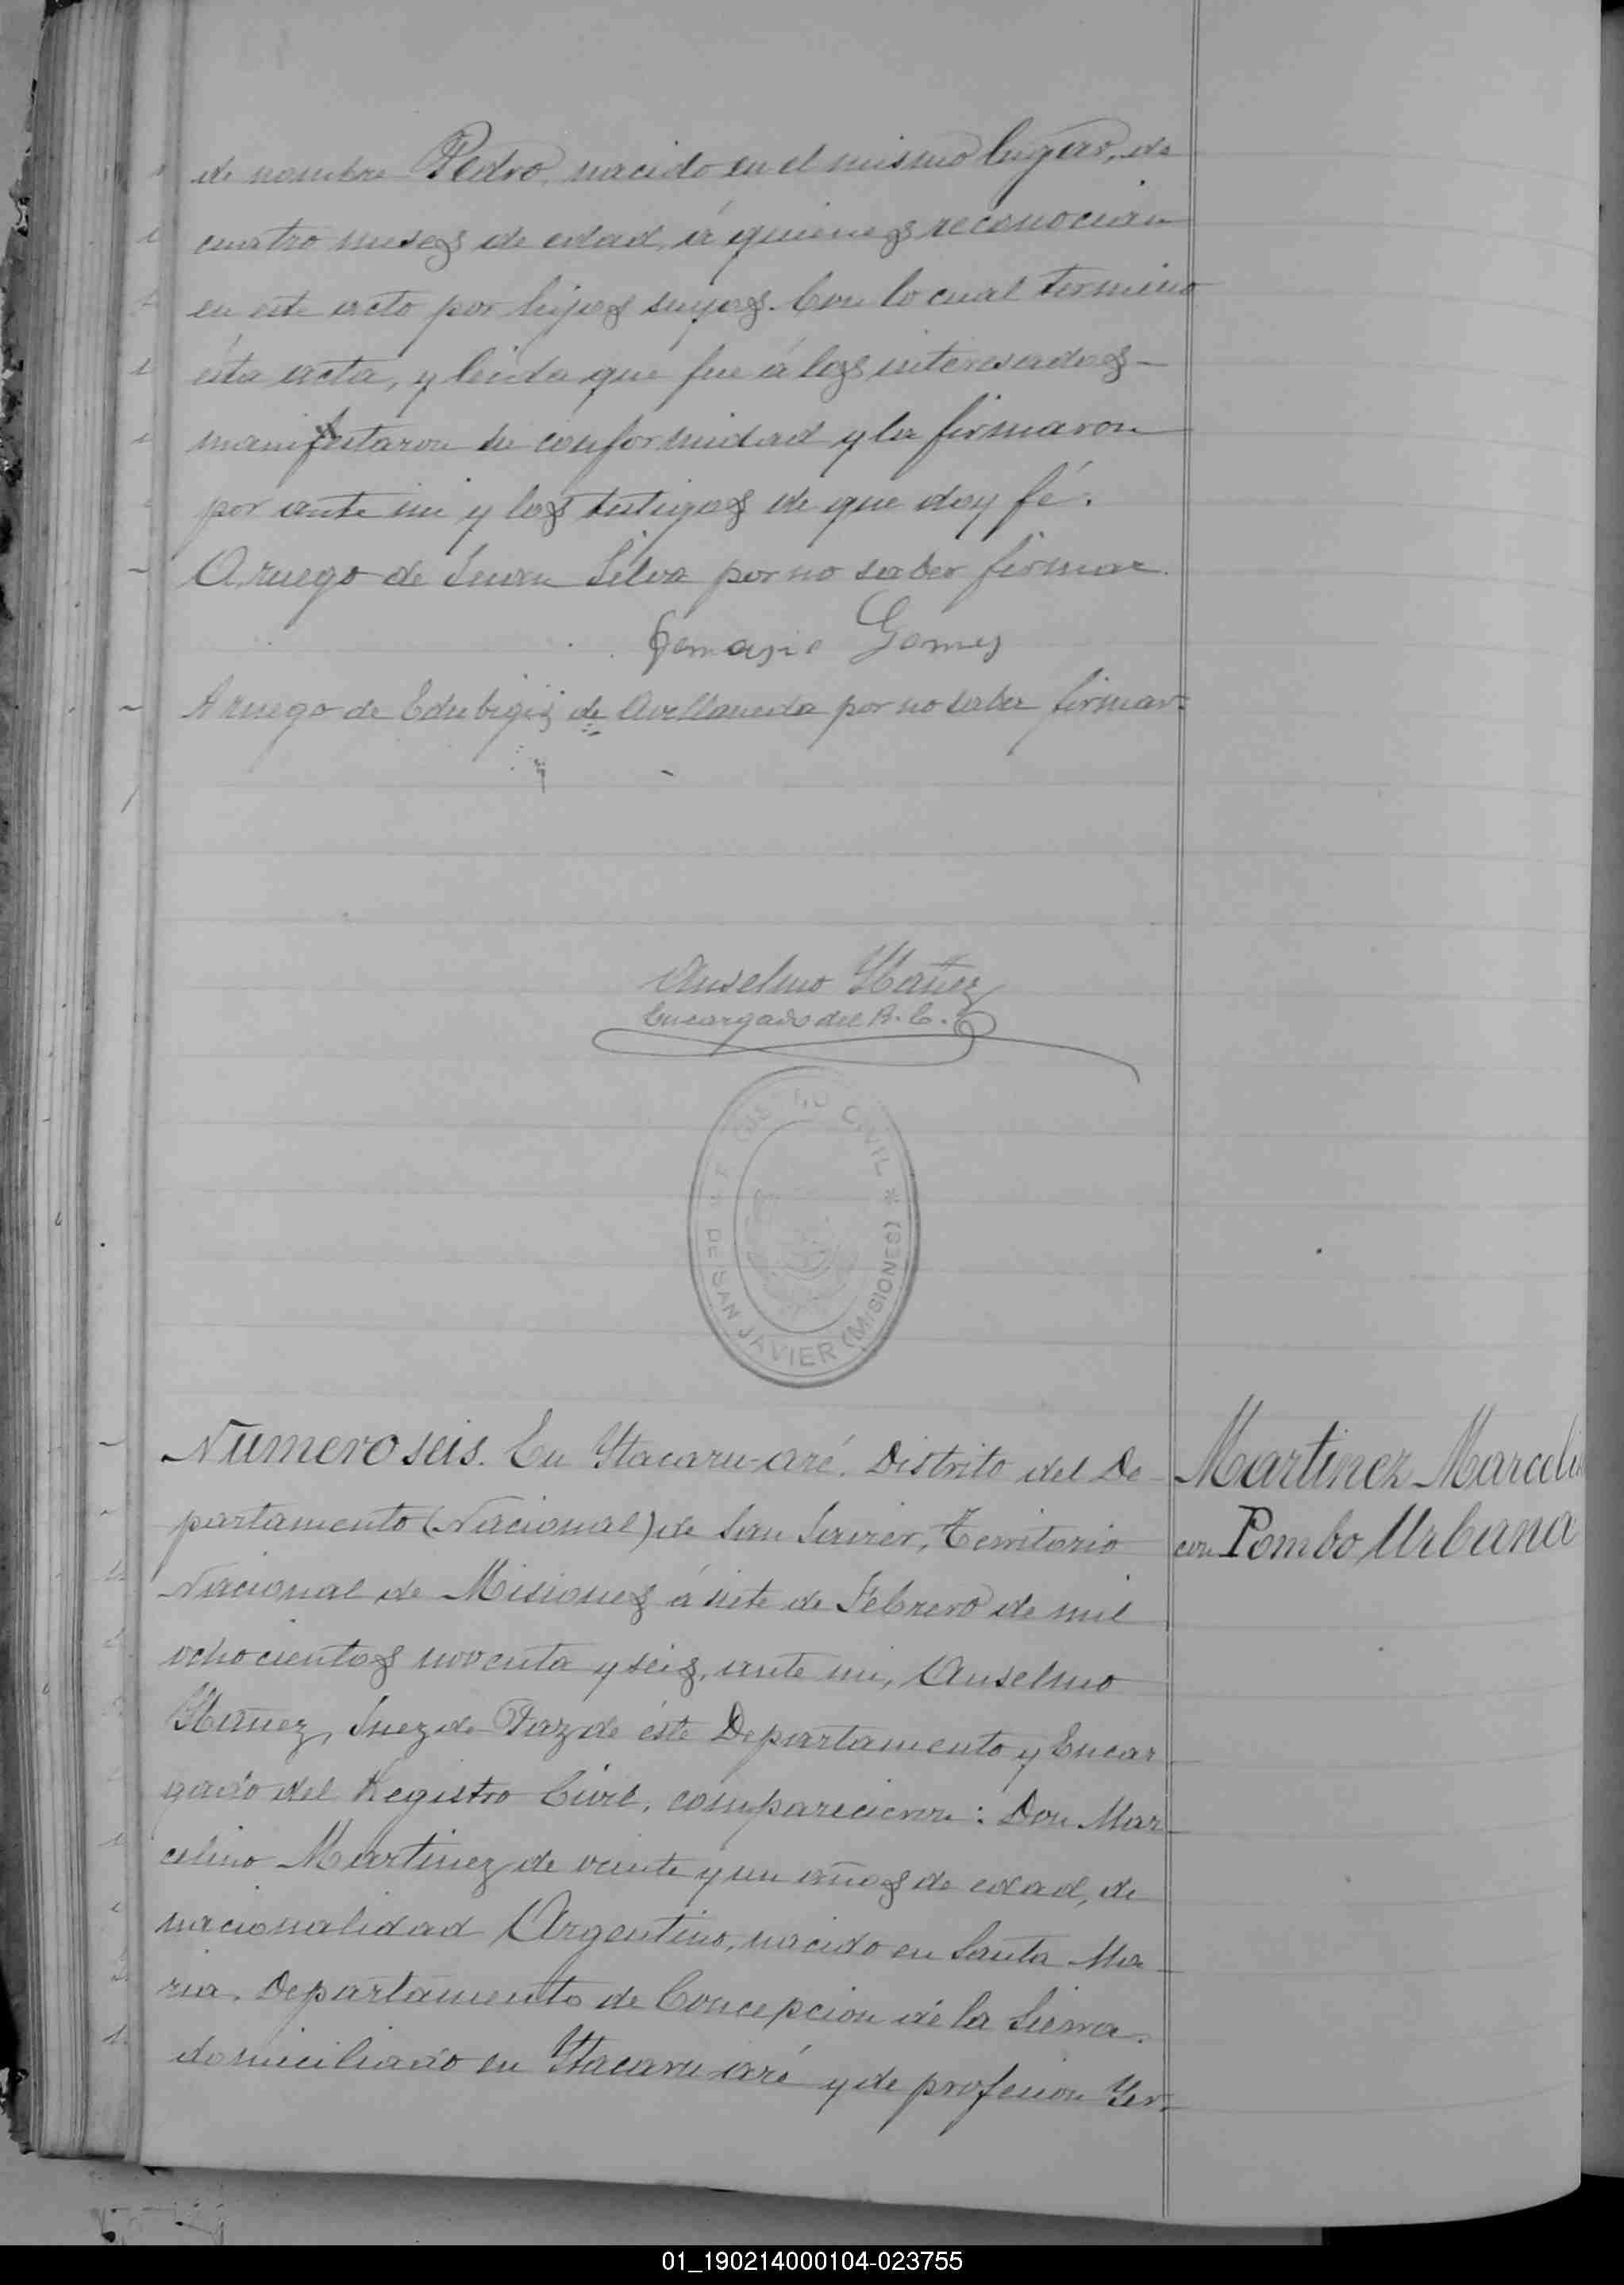 de nombre Pedro, nacido en el mismo lugar, de
cuatro meses de edad, á quienes reconocian
en este acto por hijos suyos. Con lo cual termino
ésta acta, y leida que fue á los interesados
manifestaron su conformidad y la firmaron
por ante mi y los testigos de que doy fé.
A ruego de Juan Silva por no saber firmar.
Gomes
A ruego de Edubigis de Avellaneda por no saber firmar.
Anselmo Ybañez
Encargado del R. C.
REGISTRO CIVIL * DE SAN JAVIER (MISIONES) *
Numero seis. En Ytacaru-aré. Distrito del De
Martinez Marcelin
partamento (Nacional) de San Javier, Territorio
con Pombo Urbana
Nacional de Misiones á siete de Febrero de mil
ochocientos noventa y seis, ante mi, Anselmo
Ybañez, Juez de Paz de éste Departamento y Encar
gado del Registro Civil, comparecieron: Don Mar
celino Martinez de veinte y un años de edad, de
nacionalidad Argentino, nacido en Santa Ma
ria, Departamento de Concepcion de la Sierra.
domiciliado en Ytacaru-aré y de profesion Yer.
01_190214000104-023755